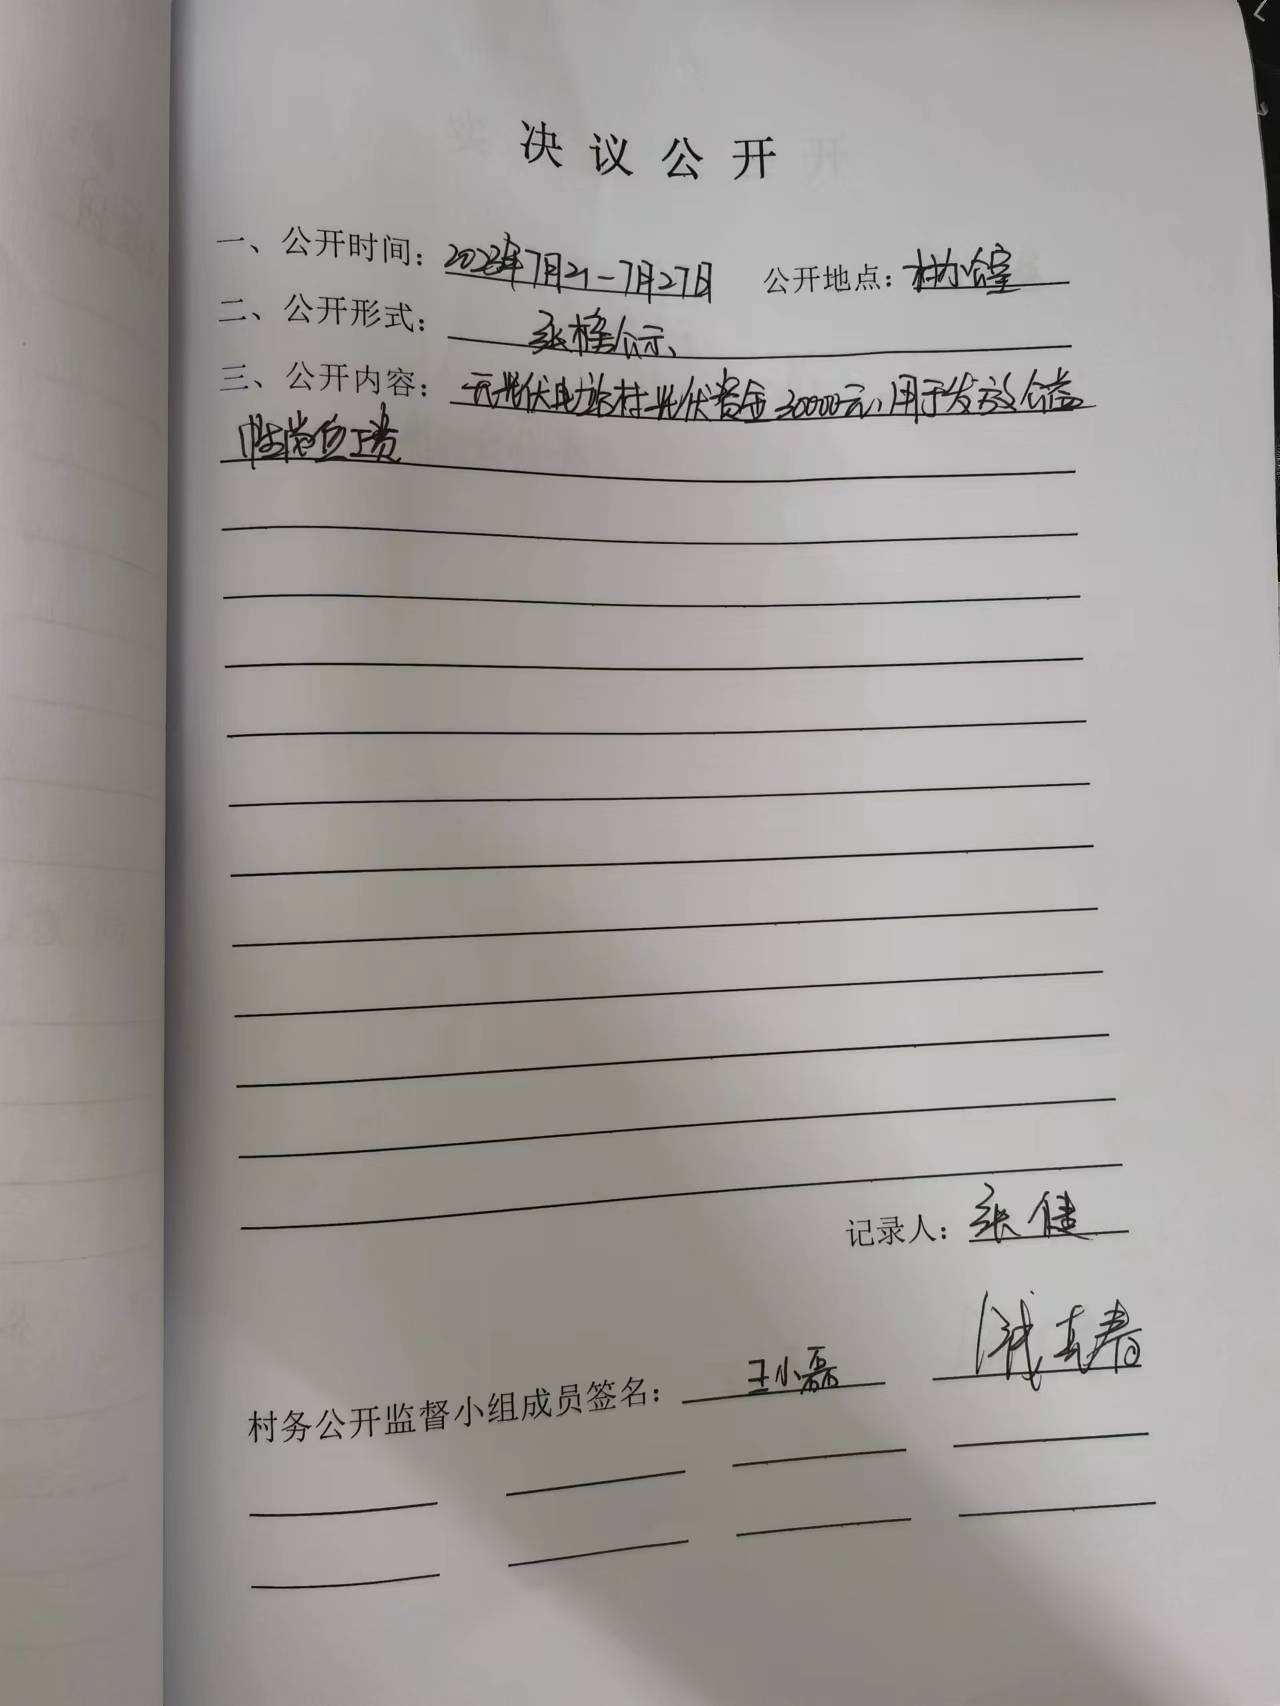 决议公开
一、公开时间：2023年7月21-7月27日 公开地点：村办公室
二、公开形式：张榜公示、
三、公开内容：无光伏电站村光伏资金30000元，用于发放公益
性岗位工资
记录人：张健
村务公开监督小组成员签名：王小磊